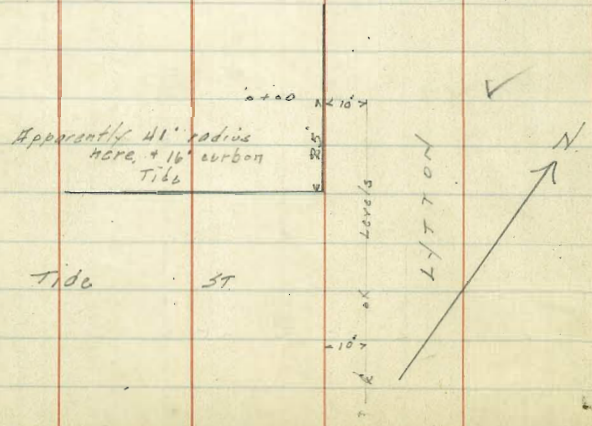 0+00
10'
Apparently 41' radius
here, + 16' curb on
Tide
25'
Levels
LYTTON
N
Tide ST
10'